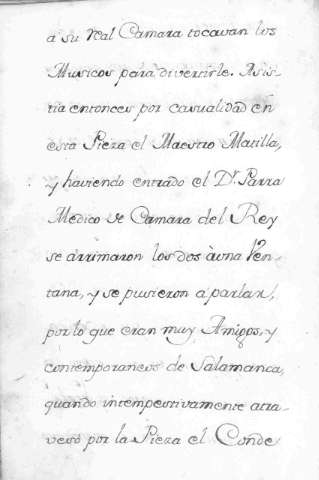 a su real Camara tocavan los
Musicos para divertirle. Asis-
tia entonces por casualidad en
esta Pieza el Maestro Matilla,
y haviendo entrado el Dr. Parra
Medico de Camara del Rey
se arrimaron los dos à una Ven-
tana, y se pusieron a parlar,
por lo que eran muy Amigos, y
contemporaneos de Salamanca,
quando intempestivamente atra-
vesó por la Pieza el Conde